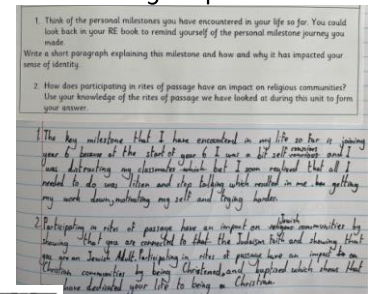 1. Think of the personal milestones you have encountered in your life so far. You could
look back in your RE book to remind yourself of the personal milestone journey you
made.
Write a short paragraph explaining this milestone and how and why it has impacted your
sense of identity.
2. How does participating in rites of passage have an impact on religious communities?
Use your knowledge of the rites of passage we have looked at during this unit to form
your answer.
1. The key milestone that I have encountered in my life so far is joining
year 6 because at the start of year 6 I was a bit self conscious and I
was distracting my classmates which but I soon realised that all I
needed to do was listen and stop talking which resulted in me getting
my work down, motivating my self and trying harder.
2. Participating in rites of passage have an impact on Jewish communities by
showing that you are connected to that the Judaism faith and showing that
you are an Jewish Adult. Participating in rites of passage have an impact on
Christian communities by being Christened, and baptised which means that
have dedicated your life to being a Christian.